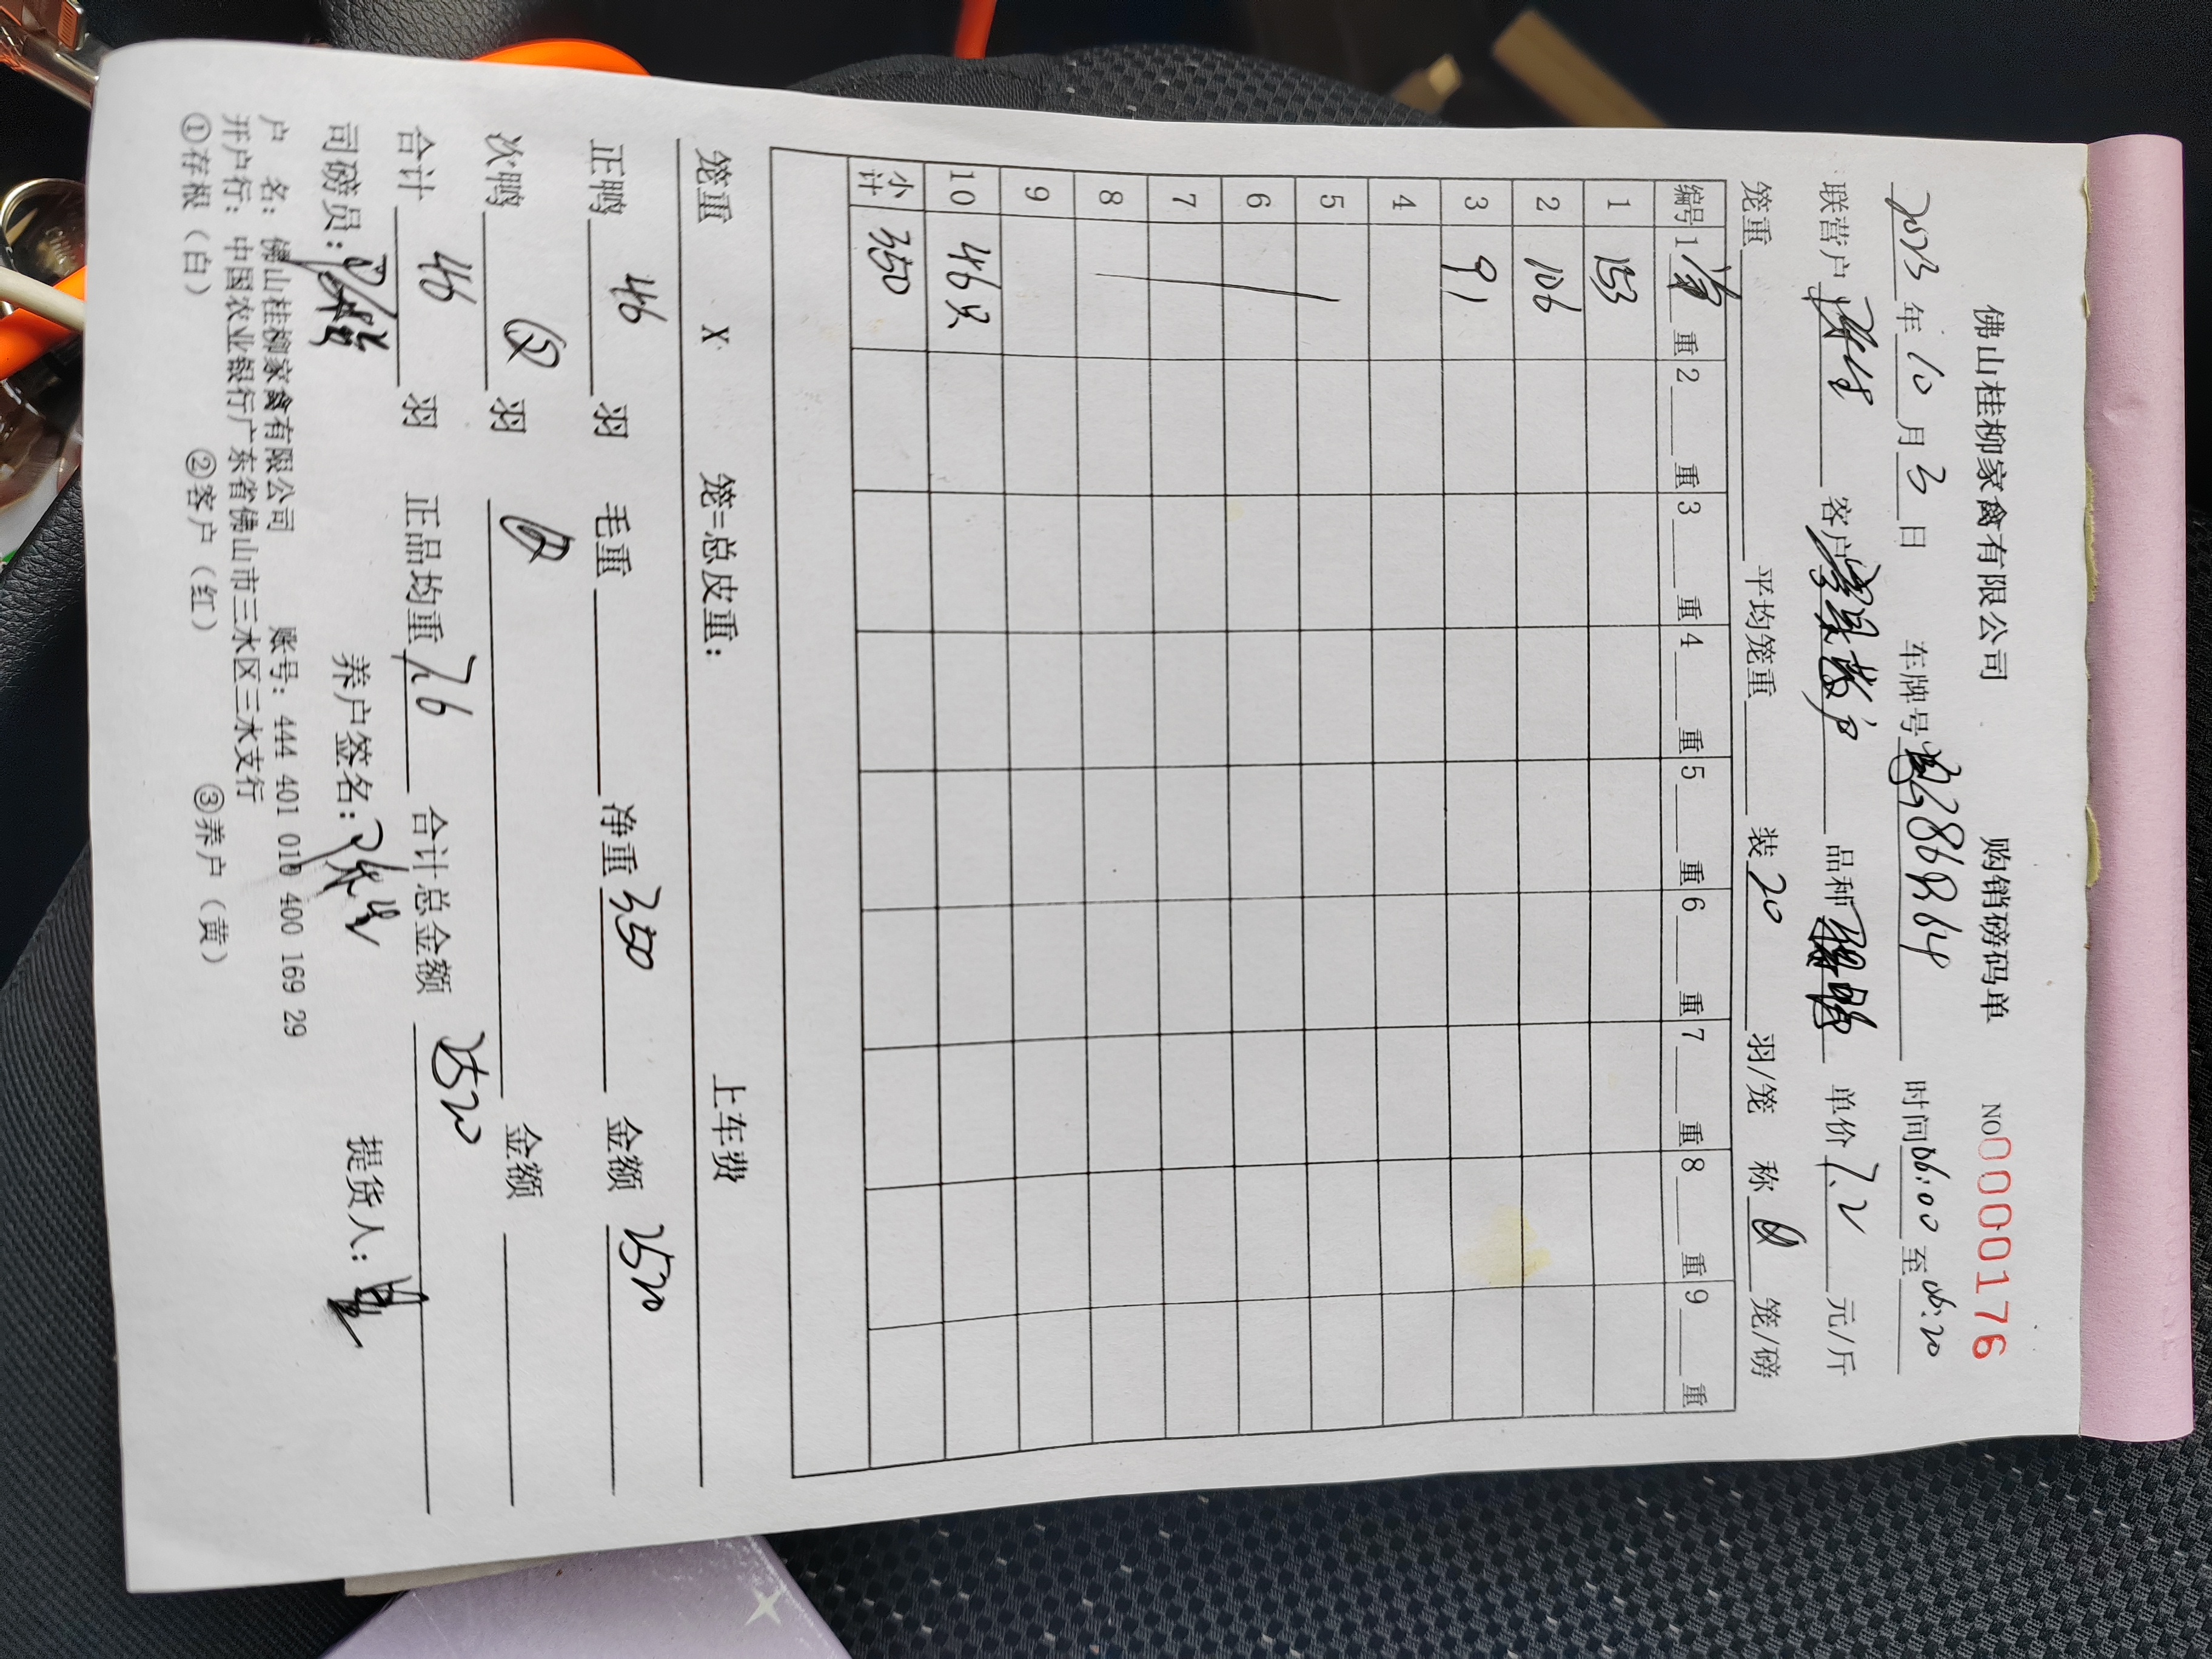 佛山桂柳家禽有限公司 购销磅码单 NO 0000176
2023 年 10 月 3 日 车牌号 286R64 时间 06:00 至 06:20
联营户 客户 散户 品种 单价 7.2 元/斤
笼重 平均笼重 装 20 羽/笼 称 笼/磅
编号 1 重 2 重 3 重 4 重 5 重 6 重 7 重 8 重 9 重
1 153
2 106
3 91
4
5
6
7
8
9
10 46只
小计 350
笼重 X 笼=总皮重: 上车费
正鸭 46 羽 毛重 净重 350 金额 2520
次鸭 羽 金额
合计 46 羽 正品均重 7.6 合计总金额 2520
司磅员: 养户签名: 提货人:
户 名: 佛山桂柳家禽有限公司 账号: 444 401 010 400 169 29
开户行: 中国农业银行广东省佛山市三水区三水支行
①存根(白) ②客户(红) ③养户(黄)